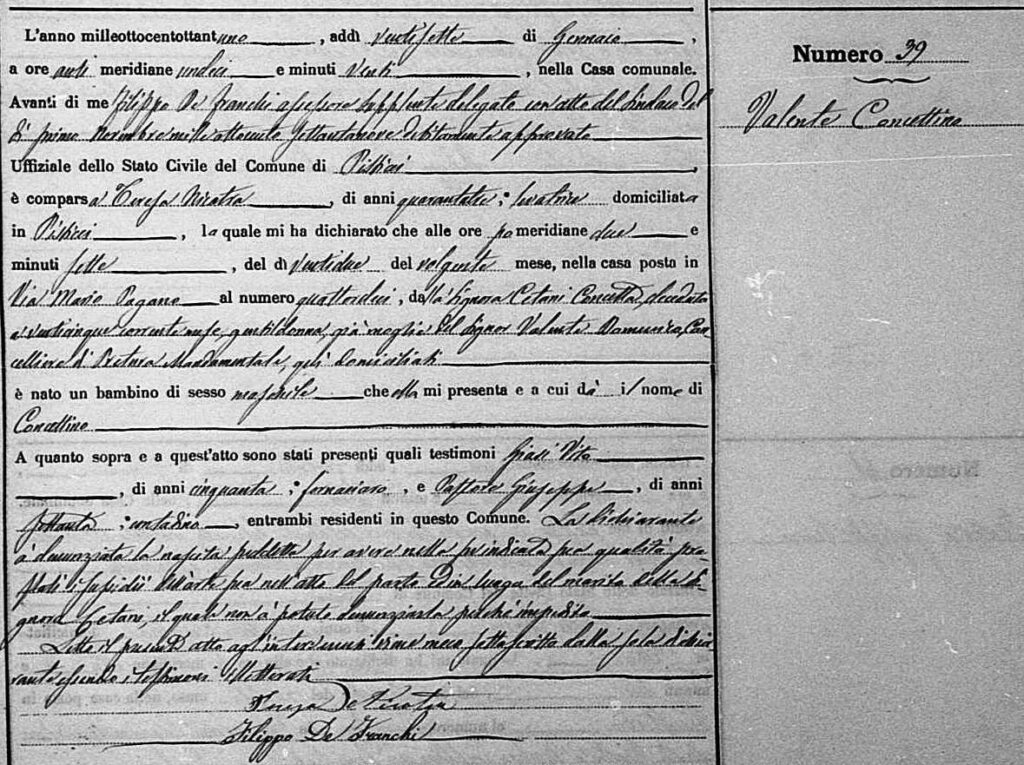 L'anno milleottocentottantuno, addì ventisette di Gennaio,
a ore anti meridiane undici e minuti venti, nella Casa comunale.
Avanti di me Filippo De Franchi assessore supplente delegato con atto del Sindaco del
dì primo Novembre mille ottocento settantanove debitamente approvato
Uffiziale dello Stato Civile del Comune di Pisticci,
è comparsa Teresa Nicotra, di anni quarantatre; levatrice domiciliata
in Pisticci, la quale mi ha dichiarato che alle ore pomeridiane due e
minuti sette, del dì ventidue del volgente mese, nella casa posta in
Via Mario Pagano al numero quattordici, dalla Signora Cetani Concetta, deceduta
a venticinque corrente mese, gentildonna, già moglie del Signor Valente Domenico, Can-
celliere di Pretura Mandamentale, qui domiciliati
è nato un bambino di sesso maschile che ella mi presenta e a cui dà il nome di
Concettino
A quanto sopra e a quest'atto sono stati presenti quali testimoni Giasi Vito
, di anni cinquanta; fornaciaro, e Pastore Giuseppe, di anni
settanta; contadino, entrambi residenti in questo Comune. La dichiarante
à denunziata la nascita suddetta per avere nella preindicata sua qualità pre-
stati i sussidii dell'arte sua nell'atto del parto ed in luogo del marito della Si-
gnora Cetani, il quale non à potuto denunziarla perchè impedito
Letto il presente atto agl'intervenuti viene meco sottoscritto dalla sola dichia-
rante essendo i testimoni illetterati
Teresa De Nicotra
Filippo De Franchi
Numero 39
Valente Concettino